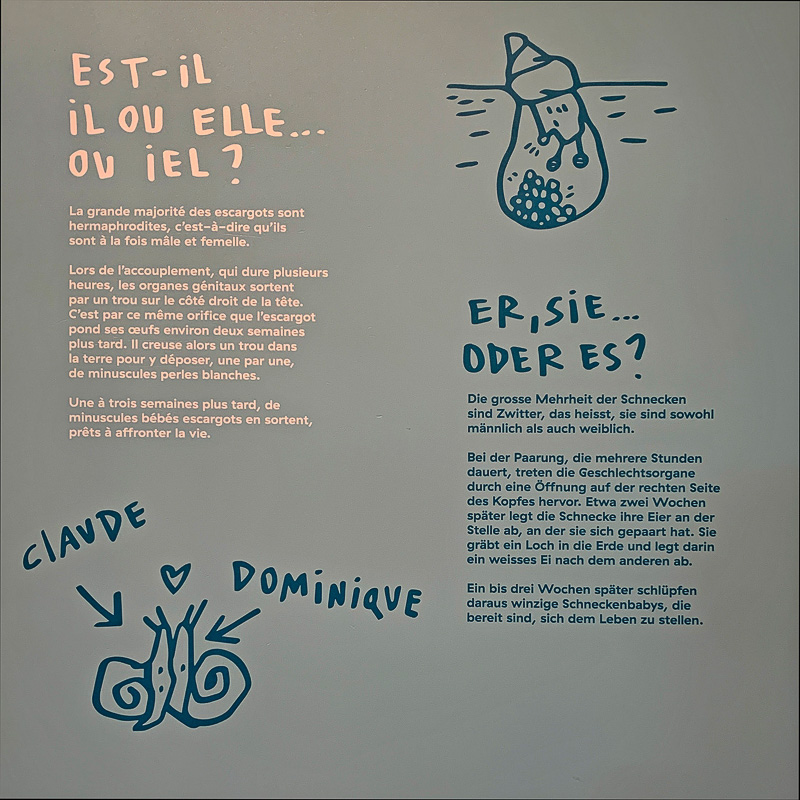 EST-iL
iL OU ELLE...
OU iEL?
La grande majorité des escargots sont
hermaphrodites, c'est-à-dire qu'ils
sont à la fois mâle et femelle.
Lors de l'accouplement, qui dure plusieurs
heures, les organes génitaux sortent
par un trou sur le côté droit de la tête.
C'est par ce même orifice que l'escargot
pond ses œufs environ deux semaines
plus tard. Il creuse alors un trou dans
la terre pour y déposer, une par une,
de minuscules perles blanches.
Une à trois semaines plus tard, de
minuscules bébés escargots en sortent,
prêts à affronter la vie.
ClAUDE
DOMiNiQUE
ER, SiE...
ODER ES?
Die grosse Mehrheit der Schnecken
sind Zwitter, das heisst, sie sind sowohl
männlich als auch weiblich.
Bei der Paarung, die mehrere Stunden
dauert, treten die Geschlechtsorgane
durch eine Öffnung auf der rechten Seite
des Kopfes hervor. Etwa zwei Wochen
später legt die Schnecke ihre Eier an der
Stelle ab, an der sie sich gepaart hat. Sie
gräbt ein Loch in die Erde und legt darin
ein weisses Ei nach dem anderen ab.
Ein bis drei Wochen später schlüpfen
daraus winzige Schneckenbabys, die
bereit sind, sich dem Leben zu stellen.